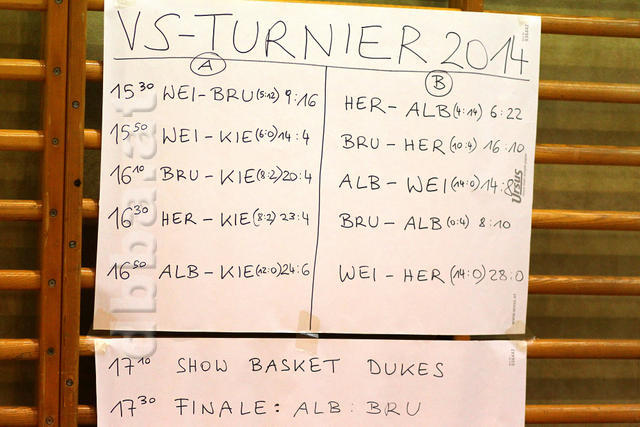 VS-TURNIER 2014
A
15³⁰ WEI-BRU(5:12) 9:16
15⁵⁰ WEI-KIE(6:0)14:4
16¹⁰ BRU-KIE(8:2)20:4
16³⁰ HER-KIE(8:2)23:4
16⁵⁰ ALB-KIE(12:0)24:6
B
HER-ALB(4:14) 6:22
BRU-HER(10:4) 16:10
ALB-WEI(14:0)14:8
BRU-ALB(0:4) 8:10
WEI-HER(14:0)28:0
17¹⁰ SHOW BASKET DUKES
17³⁰ FINALE: ALB:BRU
Ursus
gbba.at